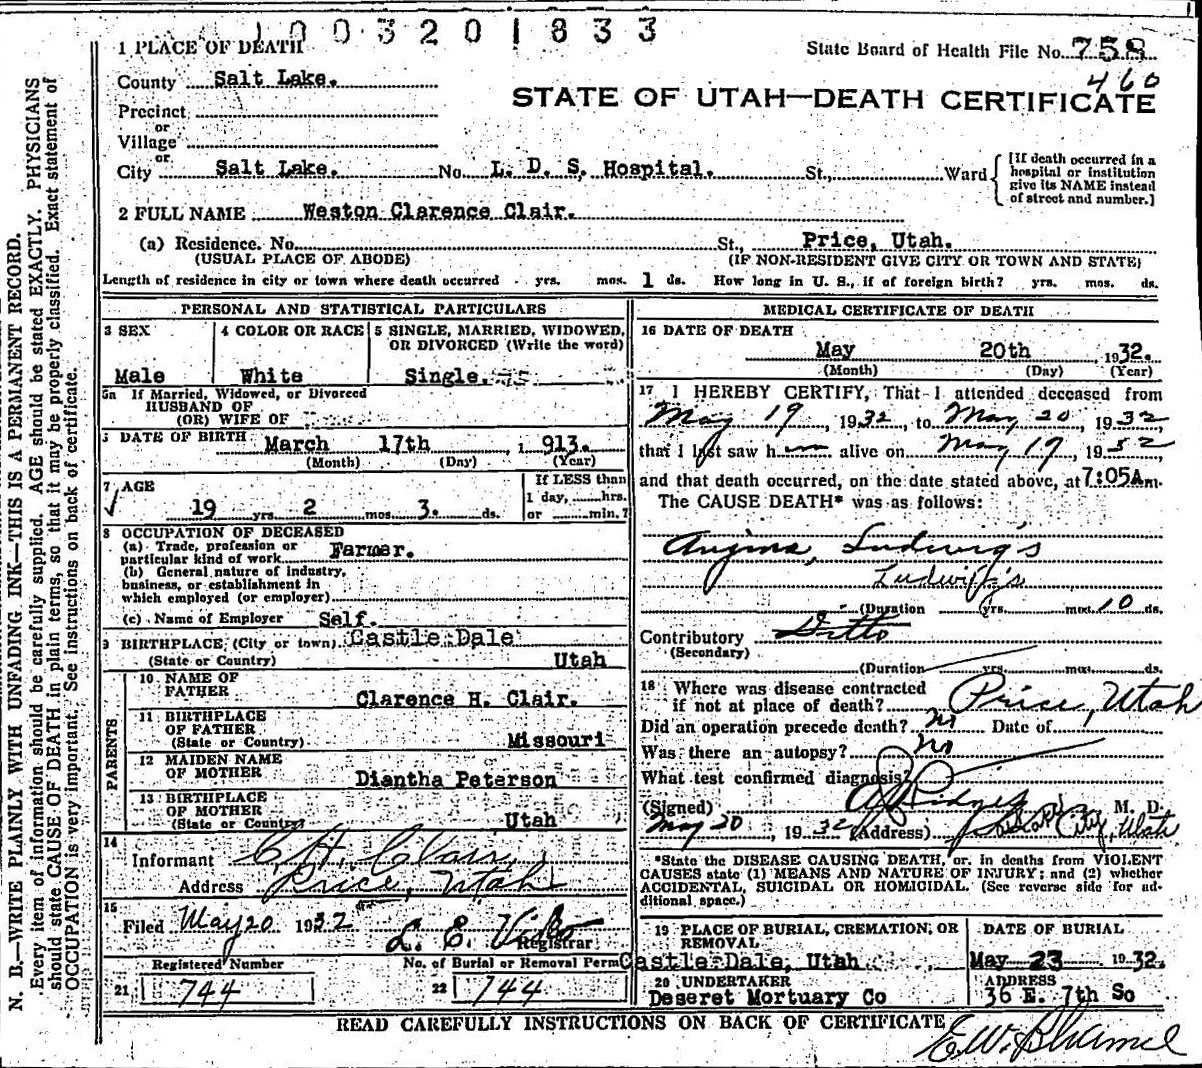 1003201833
1 PLACE OF DEATH
State Board of Health File No. 758
460
County Salt Lake.
STATE OF UTAH—DEATH CERTIFICATE
Precinct
or
Village
or
City Salt Lake. No. L. D. S. Hospital. St., Ward
[If death occurred in a hospital or institution give its NAME instead of street and number.]
2 FULL NAME Weston Clarence Clair.
(a) Residence. No. St., Price, Utah.
(USUAL PLACE OF ABODE) (IF NON-RESIDENT GIVE CITY OR TOWN AND STATE)
Length of residence in city or town where death occurred yrs. mos. 1 ds. How long in U. S., if of foreign birth? yrs. mos. ds.
PERSONAL AND STATISTICAL PARTICULARS
3 SEX 4 COLOR OR RACE 5 SINGLE, MARRIED, WIDOWED,
OR DIVORCED (Write the word)
Male White Single.
5a If Married, Widowed, or Divorced
HUSBAND OF
(OR) WIFE OF
6 DATE OF BIRTH March 17th 1913.
(Month) (Day) (Year)
7 AGE If LESS than
1 day, hrs.
19 yrs. 2 mos. 3. ds. or min.?
8 OCCUPATION OF DECEASED
(a) Trade, profession or
particular kind of work Farmer.
(b) General nature of industry,
business, or establishment in
which employed (or employer)
(c) Name of Employer Self.
9 BIRTHPLACE (City or town) Castle Dale
(State or Country) Utah
PARENTS
10 NAME OF
FATHER Clarence H. Clair.
11 BIRTHPLACE
OF FATHER
(State or Country) Missouri
12 MAIDEN NAME
OF MOTHER Diantha Peterson
13 BIRTHPLACE
OF MOTHER
(State or Country) Utah
14
Informant C. H. Clair,
Address Price, Utah
15
Filed May 20 1932 L. E.
Registrar
Registered Number No. of Burial or Removal Perm
21 744 22 744
MEDICAL CERTIFICATE OF DEATH
16 DATE OF DEATH
May 20th 1932.
(Month) (Day) (Year)
17 I HEREBY CERTIFY, That I attended deceased from
May 19, 1932 to May 20, 1932
that I last saw him alive on May 19, 1932
and that death occurred, on the date stated above, at 7:05A m.
The CAUSE DEATH* was as follows:
Angina, Ludwig's
Ludwig's
(Duration yrs. mos. 10 ds.
Contributory Ditto
(Secondary)
(Duration yrs. mos. ds.
18 Where was disease contracted
if not at place of death? Price, Utah
Did an operation precede death? no Date of
Was there an autopsy? no
What test confirmed diagnosis?
(Signed) M. D.
May 20, 1932 (Address) Salt Lake City, Utah
*State the DISEASE CAUSING DEATH, or, in deaths from VIOLENT
CAUSES state (1) MEANS AND NATURE OF INJURY; and (2) whether
ACCIDENTAL, SUICIDAL OR HOMICIDAL. (See reverse side for ad-
ditional space.)
19 PLACE OF BURIAL, CREMATION, OR
REMOVAL DATE OF BURIAL
Castle Dale, Utah May 23 1932.
20 UNDERTAKER ADDRESS
Deseret Mortuary Co 36 E. 7th So
READ CAREFULLY INSTRUCTIONS ON BACK OF CERTIFICATE
E.W.
N. B.—WRITE PLAINLY WITH UNFADING INK—THIS IS A PERMANENT RECORD.
Every item of information should be carefully supplied. AGE should be stated EXACTLY. PHYSICIANS
should state CAUSE OF DEATH in plain terms, so that it may be properly classified. Exact statement of
OCCUPATION is very important. See instructions on back of certificate.